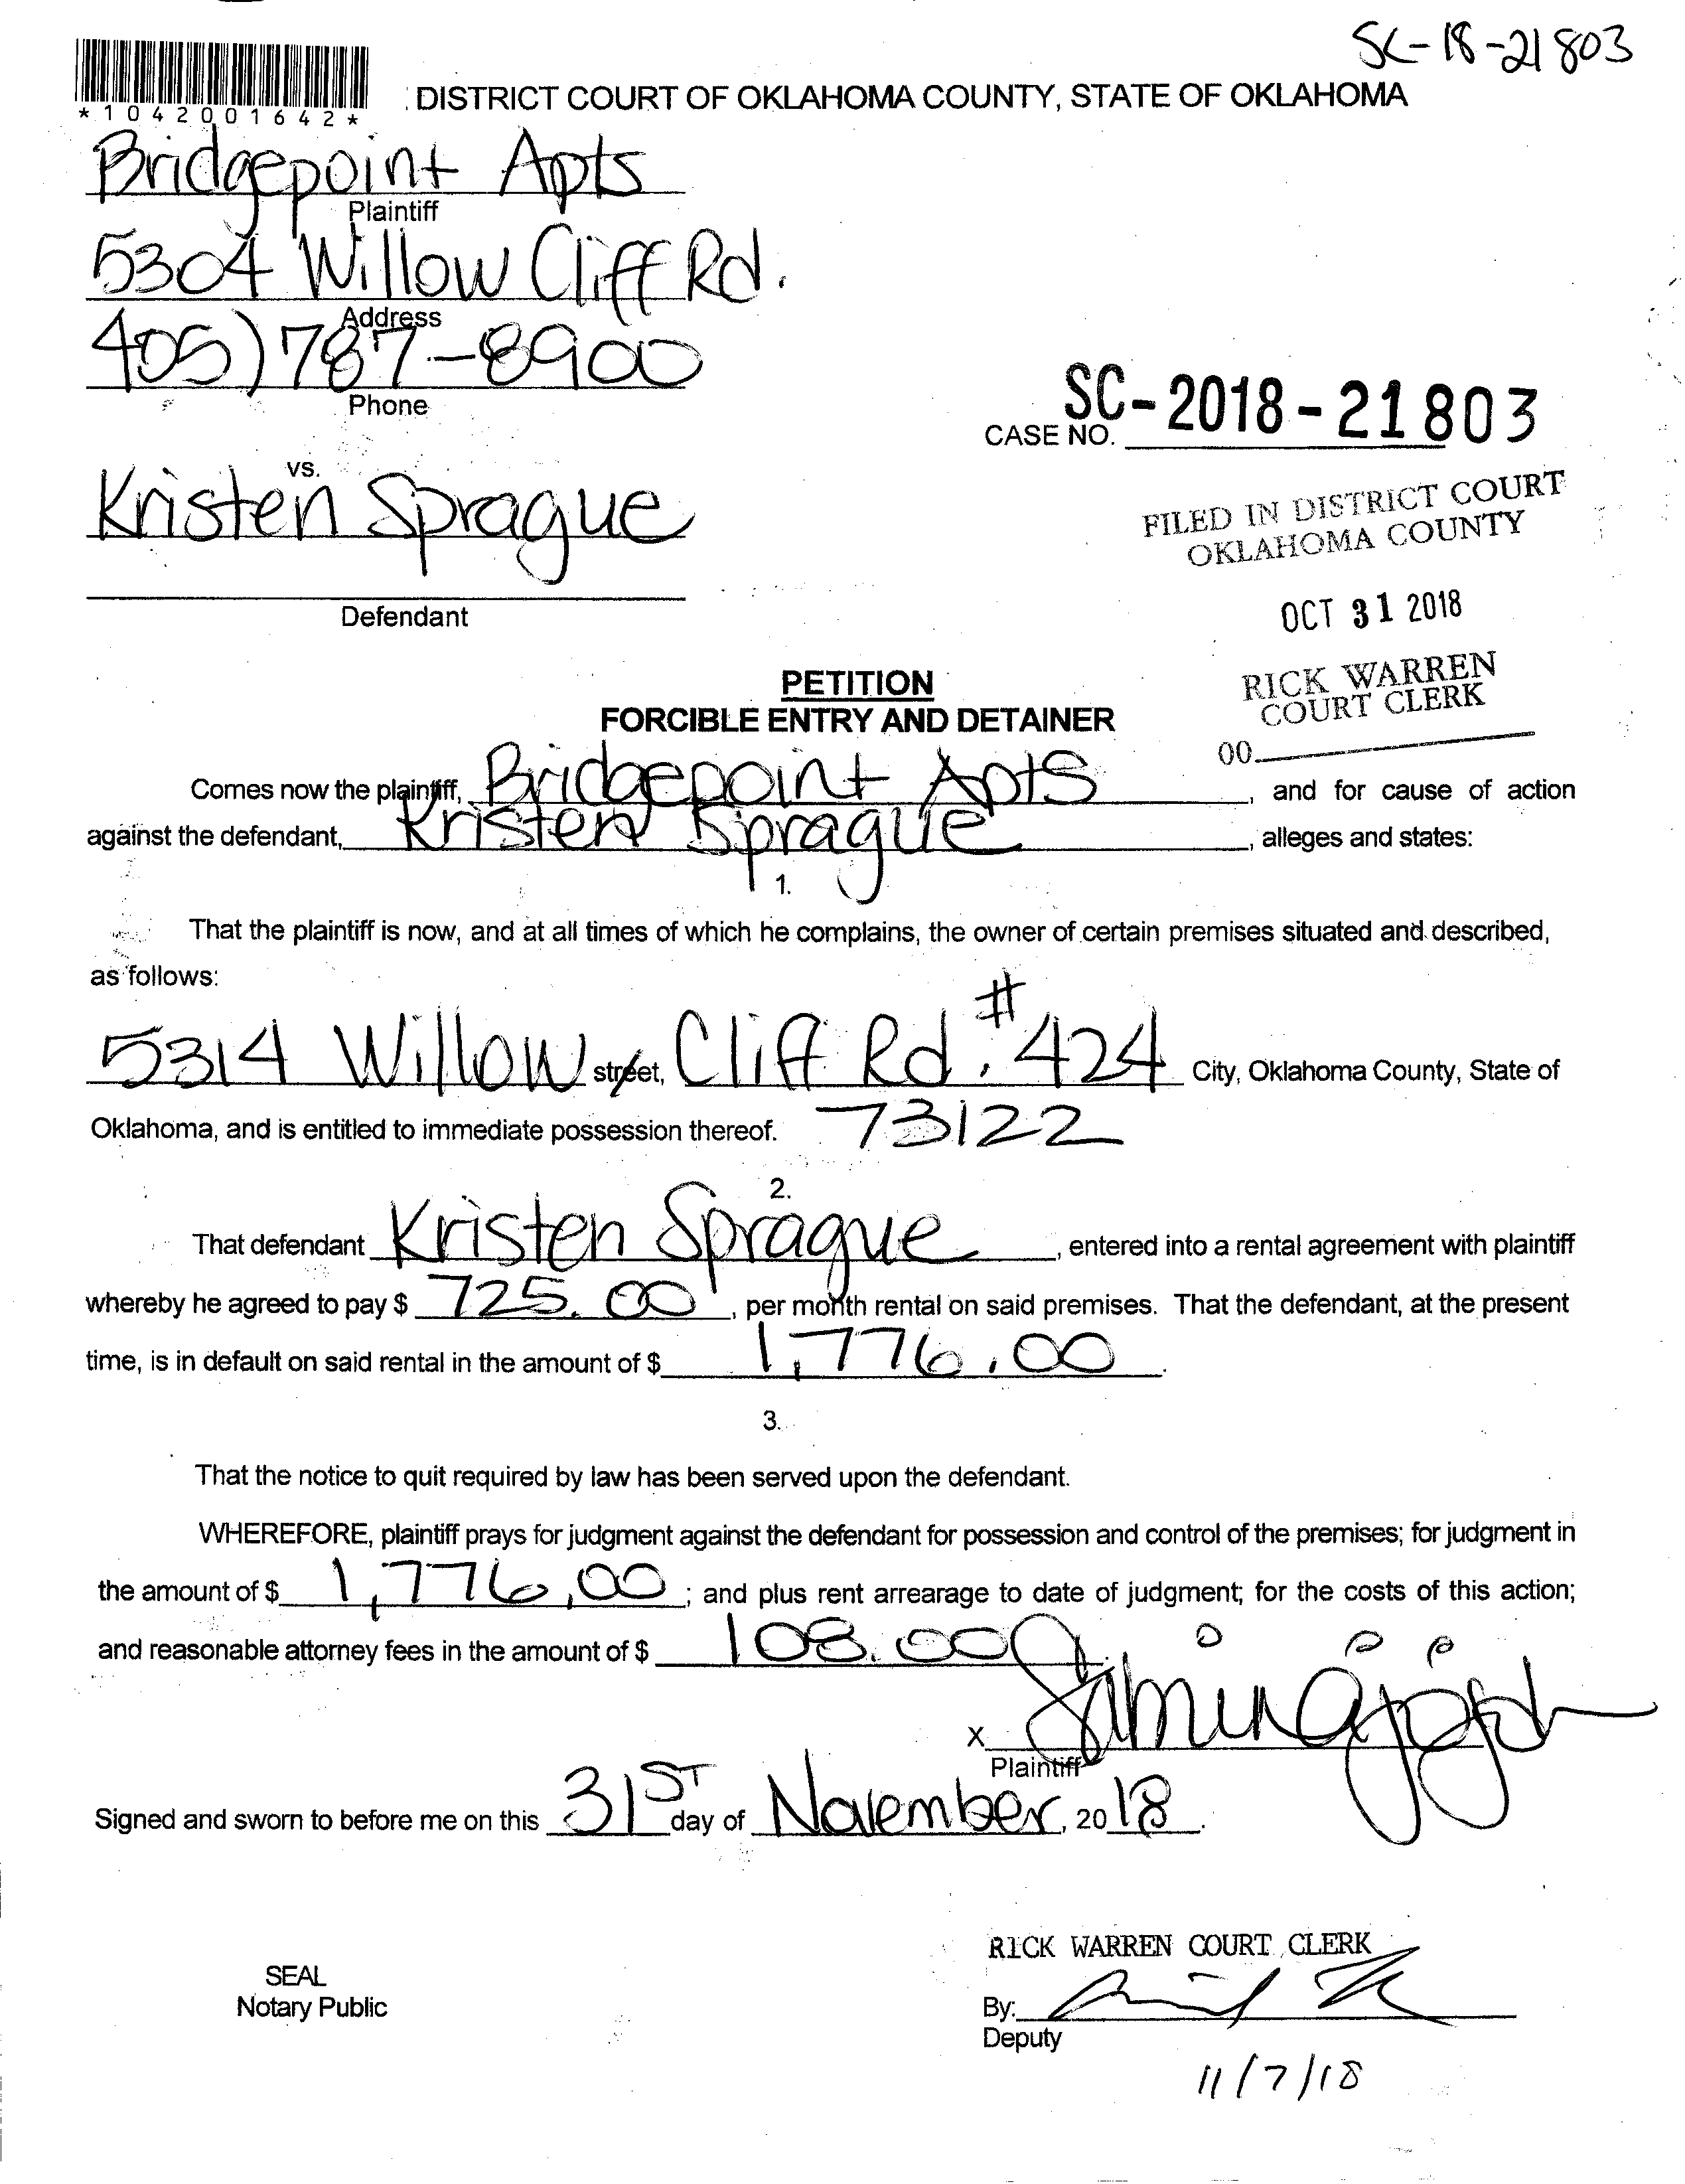 SC-18-21803
*1042001642*
DISTRICT COURT OF OKLAHOMA COUNTY, STATE OF OKLAHOMA
Bridgepoint Apts
Plaintiff
5304 Willow Cliff Rd.
Address
405) 787-8900
Phone
SC-2018-21803
CASE NO.
vs.
Kristen Sprague
FILED IN DISTRICT COURT
OKLAHOMA COUNTY
Defendant
OCT 31 2018
RICK WARREN
COURT CLERK
00
PETITION
FORCIBLE ENTRY AND DETAINER
Comes now the plaintiff, Bridgepoint Apts, and for cause of action
against the defendant, Kristen Sprague, alleges and states:
1.
That the plaintiff is now, and at all times of which he complains, the owner of certain premises situated and described,
as follows:
5314 Willow street, Cliff Rd. #424 City, Oklahoma County, State of
Oklahoma, and is entitled to immediate possession thereof. 73122
2.
That defendant Kristen Sprague, entered into a rental agreement with plaintiff
whereby he agreed to pay $ 725.00, per month rental on said premises. That the defendant, at the present
time, is in default on said rental in the amount of $ 1,776.00.
3.
That the notice to quit required by law has been served upon the defendant.
WHEREFORE, plaintiff prays for judgment against the defendant for possession and control of the premises; for judgment in
the amount of $ 1,776.00; and plus rent arrearage to date of judgment; for the costs of this action;
and reasonable attorney fees in the amount of $ 108.00.
X
Plaintiff
Signed and sworn to before me on this 31ST day of November, 2018.
RICK WARREN COURT CLERK
SEAL
Notary Public
By:
Deputy
11/7/18